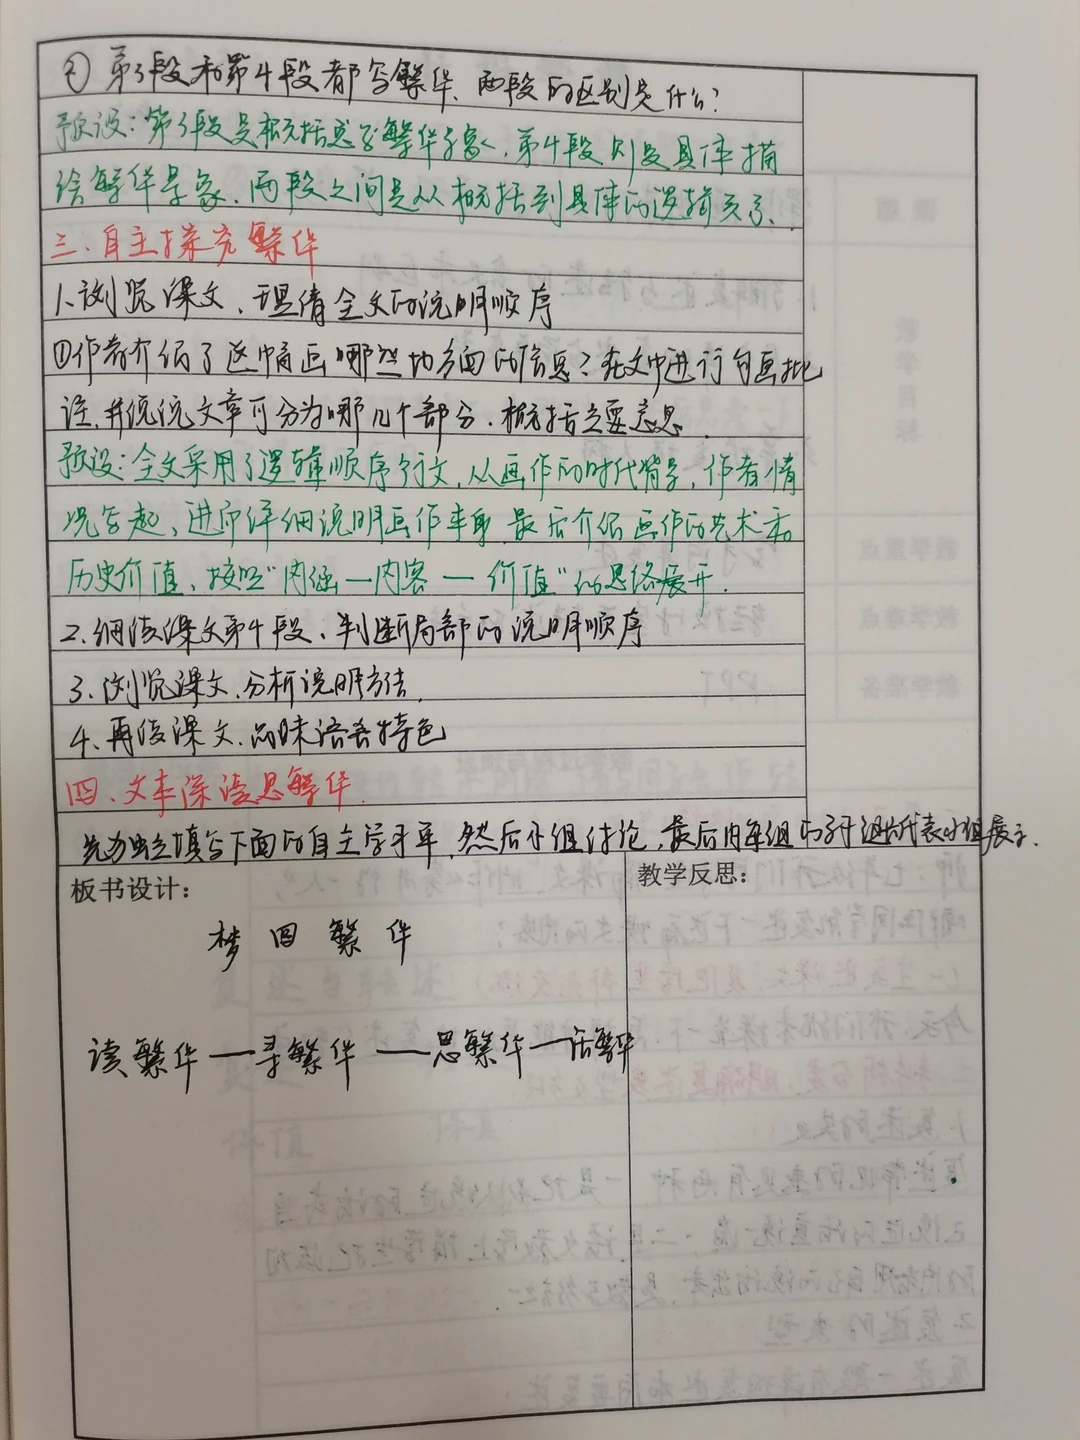 ②第3段和第4段都写繁华、两段的区别是什么?
预设:第3段是概括总写繁华景象、第4段则是具体描
绘繁华景象、两段之间是从概括到具体的逻辑关系、
三、自主探究繁华
1、浏览课文、理清全文的说明顺序
①作者介绍了这幅画哪些方面的信息?在文中进行勾画批
注,并说说文章可分为哪几个部分、概括主要意思、
预设:全文采用了逻辑顺序行文,从画作的时代背景,作者情
况写起、进而详细说明画作本身,最后介绍画作的艺术和
历史价值、按照“内涵—内容—价值”的思路展开.
2、细读课文第4段、判断局部的说明顺序
3、浏览课文、分析说明方法、
4、再读课文、品味语言特色
四、文本深读思繁华、
先独立填写下面的自主学习单,然后小组讨论,最后由每组的组长代表小组展示.
板书设计:
教学反思:
梦回繁华
读繁华—寻繁华—思繁华—话繁华